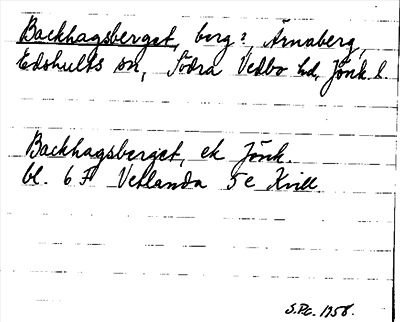 Backhagsberget, berg? Arnaberg,
Edshults sn, Södra Vedbo hd, Jönk. l.
Backhagsberget, ek Jönk.
bl. 6 F Vetlanda 5 e Kvill
S.Pc. 1958.